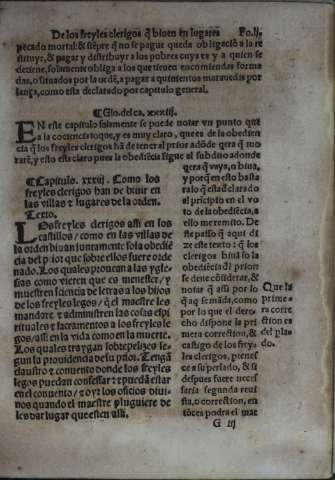 De los freyles clerigos q̃ biuen en lugares Fo.lj.
pecado mortal: & siẽpre q̃ no se pague queda obligaciõ a la re
stituyr, & pagar y distribuyr a los pobres cuya es y a quien se
detiene, solamente obliga a los que tienen encomiendas forma
das, o situados por la ordẽ, a pagar a quinientos marauedis por
lança, como esta declarado por capitulo general.
¶ Glo. del ca. xxxiij.
EN este capitulo solamente se puede notar vn punto que
a la cõciencia toque, y es muy claro, que es de la obedien
cia q̃ los freyles clerigos hã de tener al prior adõde q̃era q̃ mo
rarẽ, y esto esta claro pues la obediẽcia sigue al subdito adonde
¶ Capitulo. xxxvij. Como los
freyles clerigos han de biuir en
las villas y lugares de la orden.
Texto.
LOs freyles clerigos assi en los
castillos / como en las villas de
la orden biuan juntamente so la obediẽ
cia del prior que sobre ellos fuere orde
nado. Los quales prouean a las ygle
sias como vieren que es menester / y
muestren sciencia de letras a los hijos
de los freyles legos / q̃ el maestre les
mandare y administren las cosas espi
rituales & sacramentos a los freyles le
gos / assi en la vida como en la muerte.
Los quales traygan sobrepelizes se-
gun la prouidencia de su prior. Tengã
claustro & conuento donde los freyles
legos puedan confessar & pueda estar
en el conuento / & oyr los oficios diui-
nos quando el maestre pluguiere de
les dar lugar que esten alli.
q̃era q̃ vaya, o biua,
y porq̃ en esto basta
ra lo q̃ esta declarado
al prĩcipio en el vo
to de la obediẽcia, a
ello me remito. De
ste passo q̃ aqui di
ze este texto: q̃ los
clerigos biuã so la
obediẽcia dl prior
se deue cõsiderar, &
notar q̃ assi por lo
q̃ aq̃ se mãda, como
por lo que el dere-
cho dispone la pri
mera correction, &
castigo de los frey
les clerigos, pertenes
ce a su perlado, & si
despues fuere neces
saria segunda reui
sta, o correction, en
tõces podra el mae
Que la
prime-
ra corre
ction es
del pla
do.
G iij